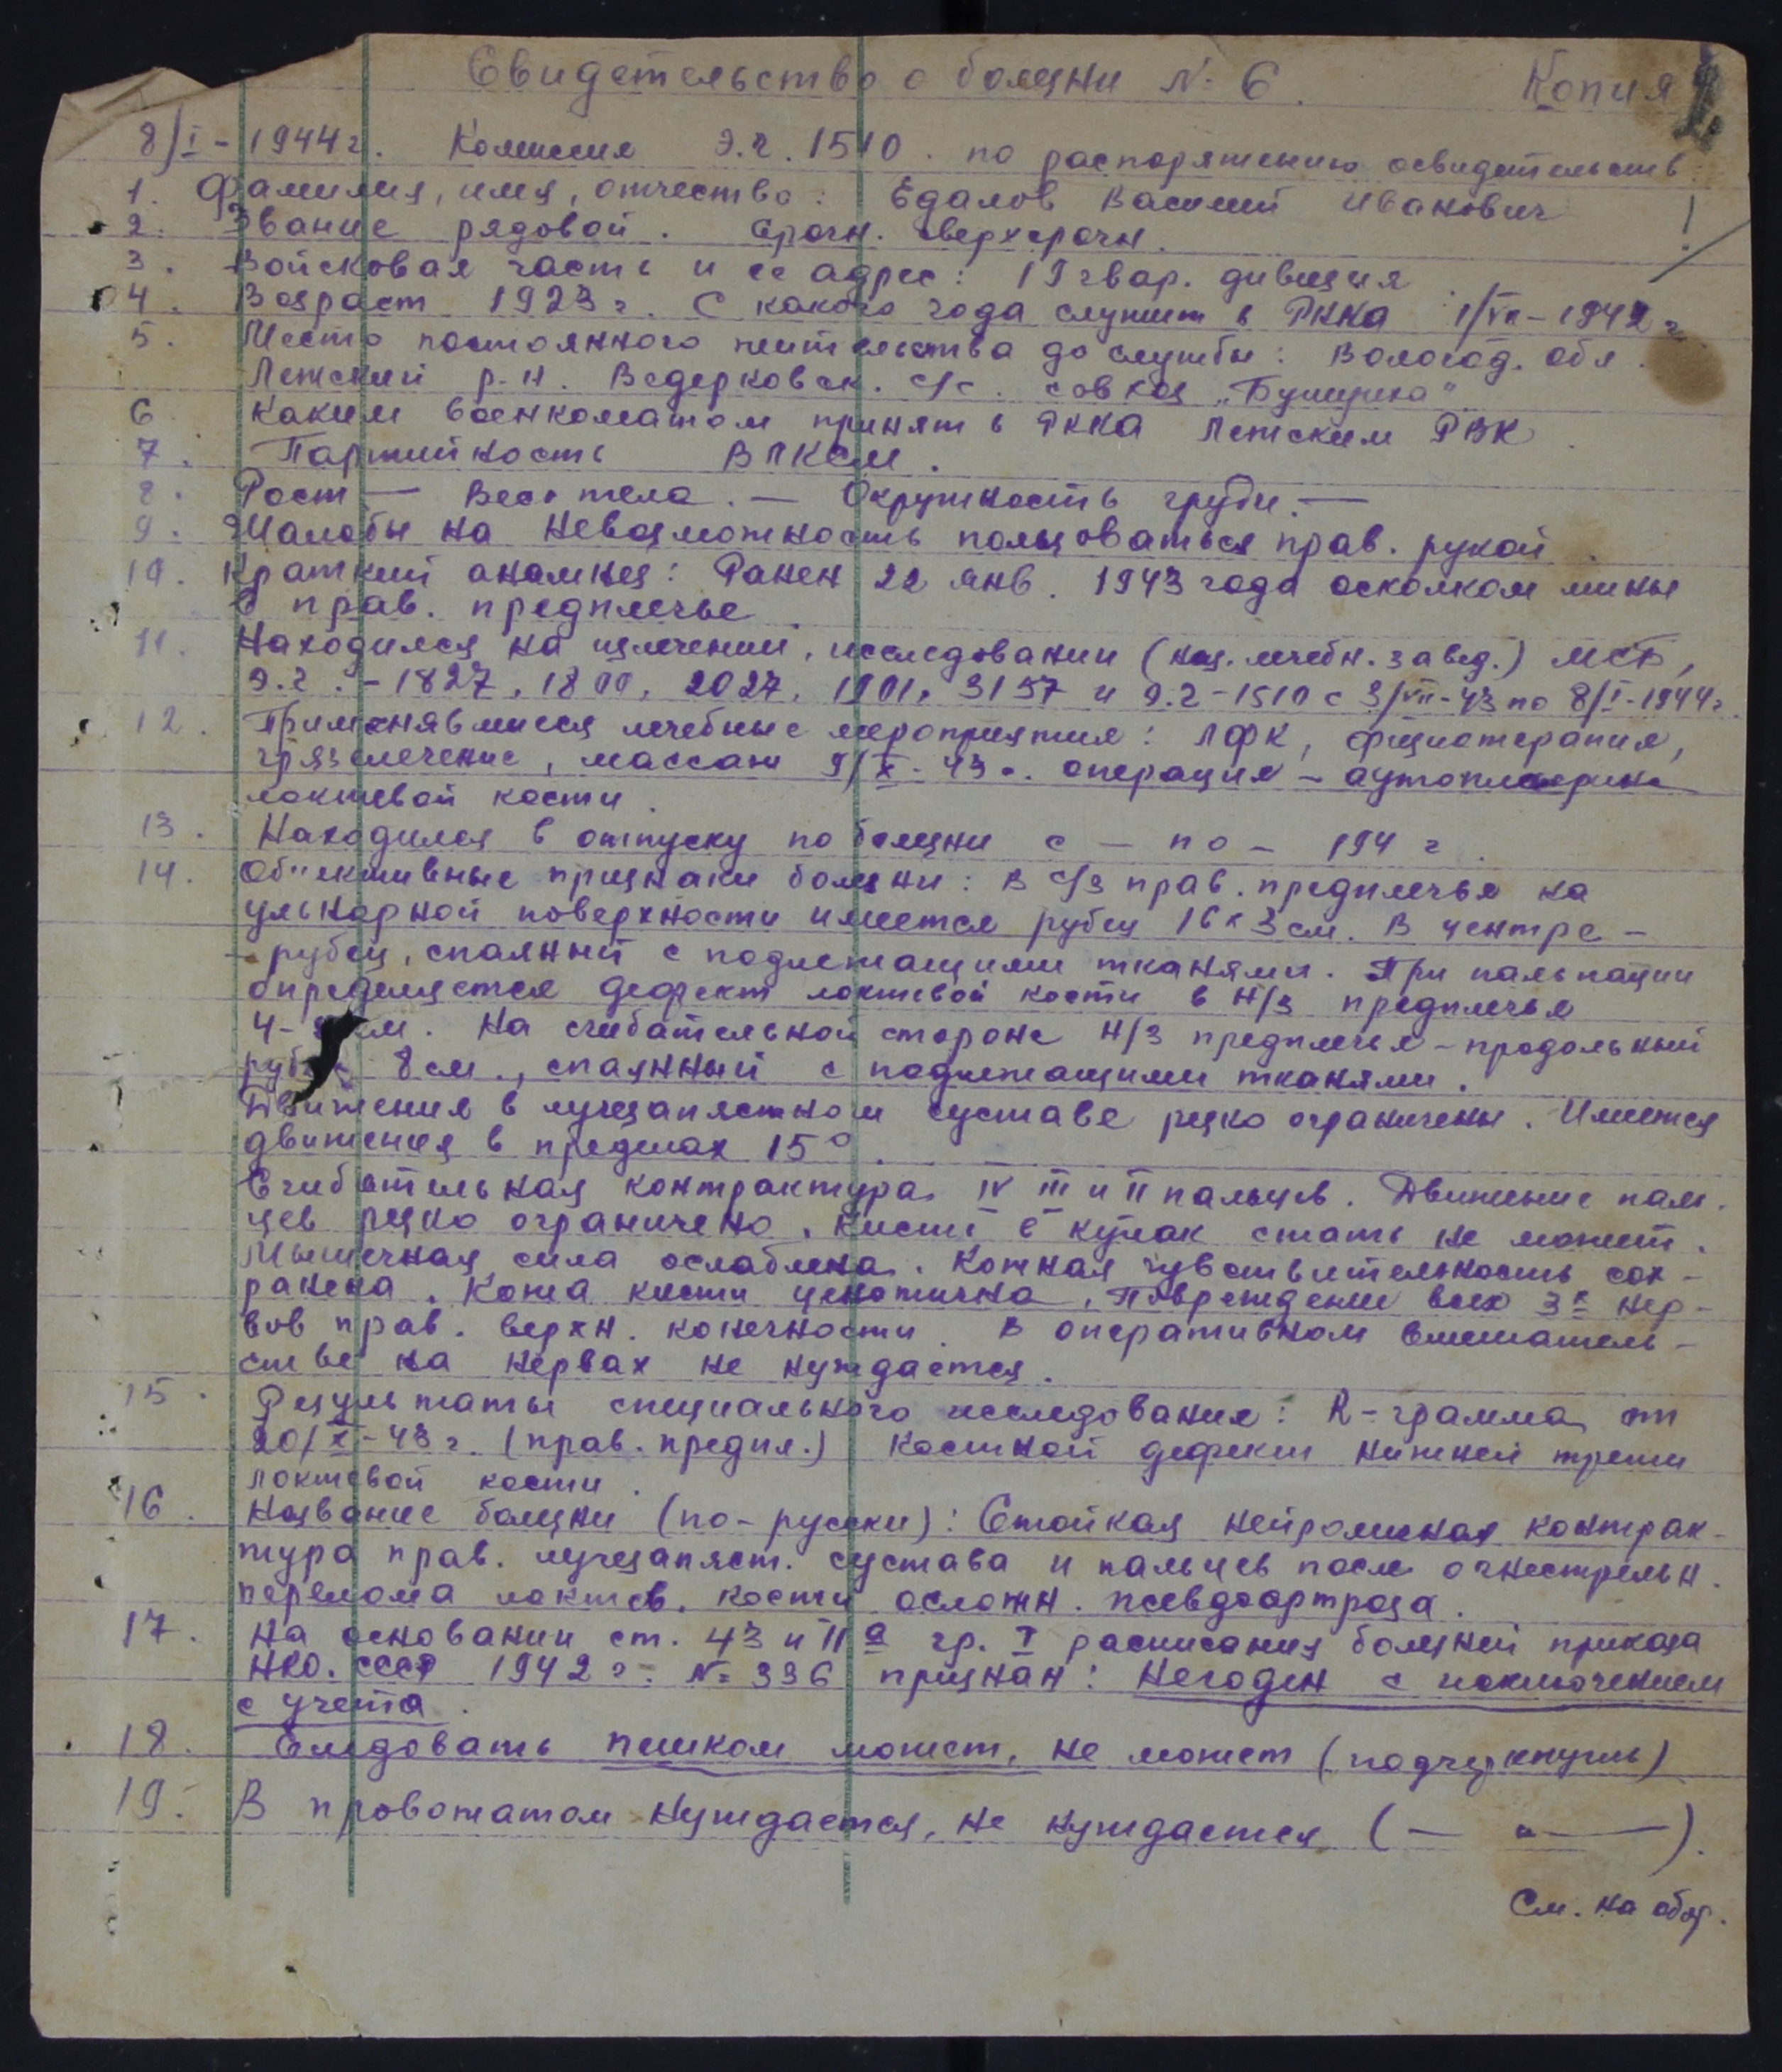 Свидетельство о болезни № 6. Копия
8/I-1944 г. Комиссия э.г. 1510. по распоряжению освидетельств.
1. Фамилия, имя, отчество: Едалов Василий Иванович
2. Звание рядовой. Срочн. сверхсрочн.
3. Войсковая часть и ее адрес: 19 гвар. дивизия
4. Возраст 1923 г. С какого года служит в РККА 1/VII-1942 г.
5. Место постоянного жительства до службы: Вологод. обл.
Лежский р-н. Ведерковск. с/с. совхоз
6 Каким военкоматом принят в РККА Лежским РВК.
7. Партийность ВЛКСМ.
8. Рост — Вес тела. — Окружность груди. —
9. Жалобы на невозможность пользоваться прав. рукой.
10. Краткий анамнез: Ранен 22 янв. 1943 года осколком мины
в прав. предплечье.
11. Находился на излечении, исследовании (наз. лечебн. завед.) МСБ,
э.г. - 1827, 2027, 1901, 3157 и э.г-1510 с 3/VII-43 по 8/I-1944 г.
12. Применявшиеся лечебные мероприятия: ЛФК, физиотерапия,
грязелечение, массаж 9/X-43 г. операция - аутопластика
локтевой кости.
13. Находился в отпуску по болезни с — по — 194 г.
14. Об"ективные признаки болезни: В с/з прав. предплечья на
ульнарной поверхности имеется рубец 16 х 3 см. В центре -
- рубец, спаянный с подлежащими тканями. При пальпации
определяется дефект локтевой кости в н/з предплечья
4- см. На сгибательной стороне н/з предплечья - продольный
рубец 8 см., спаянный с подлежащими тканями.
Движения в лучезапястном суставе резко ограничены. Имеется
движения в пределах 15°.
Сгибательная контрактура IV III и II пальцев. Движение паль-
цев резко ограничено. Кисть в кулак сжать не может.
Мышечная сила ослаблена. Кожная чувствительность сох-
ранена. Кожа кисти цианотична. Повреждение всех 3х нер-
вов прав. верхн. конечности. В оперативном вмешатель-
стве на нервах не нуждается.
15. Результаты специального исследования: R-грамма от
20/X-43 г. (прав. предпл.) Костной дефект нижней трети
локтевой кости.
16. Название болезни (по-русски): Стойкая нейроминая контрак-
тура прав. лучезапяст. сустава и пальцев после огнестрельн.
перелома локтев. кости осложн. псевдоартроза.
17. На основании ст. 43 и 11а гр. I расписания болезней приказа
НКО. СССР 1942 г. № 336 признан: Негоден с исключением
с учета.
18. Следовать пешком может, не может (подчеркнуть)
19. В провожатом нуждается, не нуждается (— " —).
См. на обор.